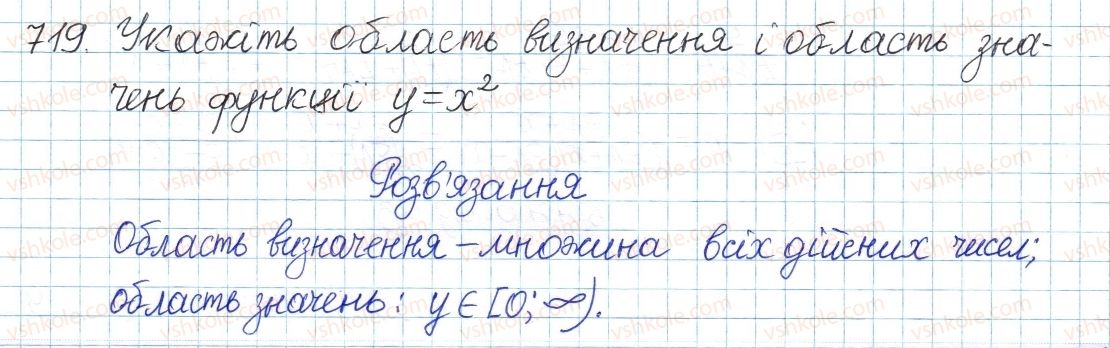 719. Укажіть область визначення і область зна-
чень функції y=x²
Розв'язання
Область визначення – множина всіх дійсних чисел;
область значень: y∈[0;∞).